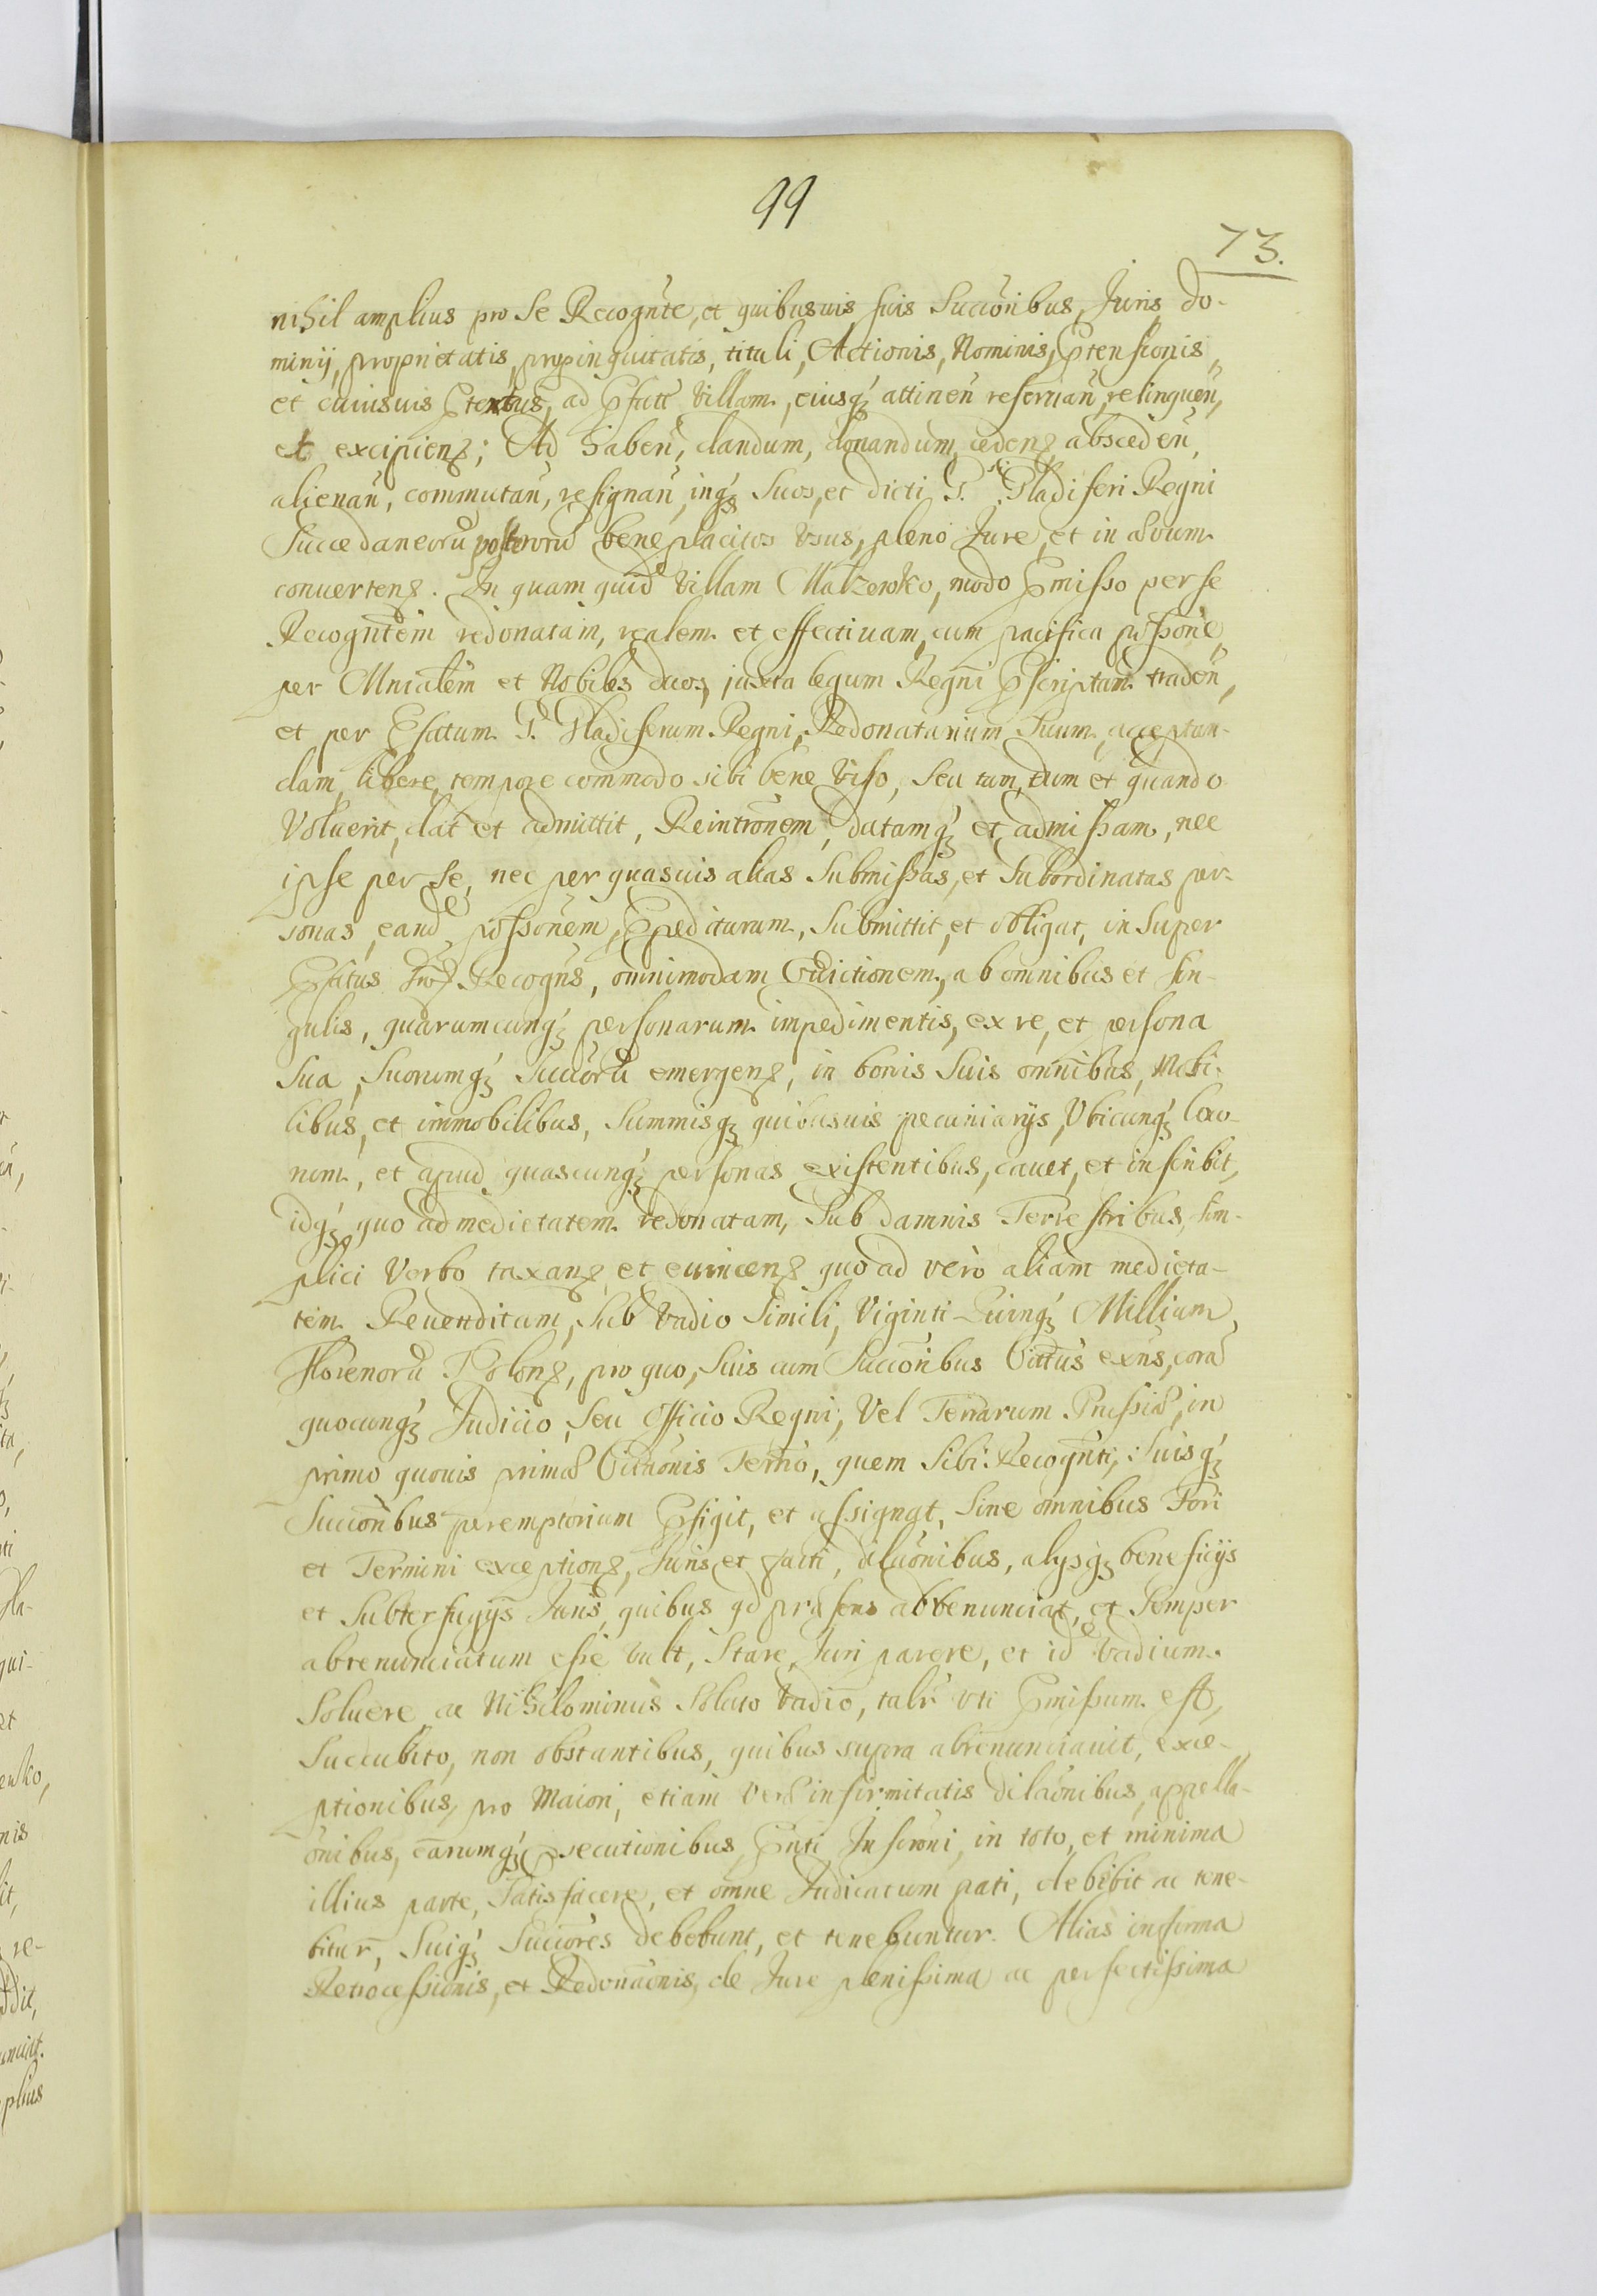 99
73.
nihil amplius pro Se Recognte, et quibusuis suis Succoribus, Juris do-
minij, proprietatis, propinquitatis, tituli, Actionis, Nominis, Ptensionis
et cuiusuis Ptextus, ad Pfatt Villam, eiusq attinen reseruan, relinquen,
et excipien; Ad haben, dandum, donandum, ceden, absceden,
alienan, commutan, resignan, inq Suos, et dicti P. Gladiferi Regni
Succedaneoru posteroru beneplacitos Vsus, pleno Jure, et in æuum
conuerten. In quam quid Villam Malzewko, modo Pmisso per se
Recogntem redonatam, realem et effectiuam, cum pacifica possone,
per Mnialem et Nobiles duos, juxta legum Regni Pscriptam traden,
et per Pfatum P. Gladiferum Regni, Redonatarium Suum, acceptan-
dam, libere, tempore commodo sibi bene Viso, Seu tum, dum et quando
Voluerit, dat et admittit, Reintronem, datamq et admissam, nec
ipse per Se, nec per quasuis alias Submissas, et Subordinatas per-
sonas, eand possonem, Ppediturum, Submittit, et obligat, in Super
Pfatus Recogns, omnimodam Euictionem, ab omnibus et sin-
gulis, quarumcunq personarum impedimentis, ex re, et persona
Sua, Suorumq Succoru emergen, in bonis Suis omnibus, Mobi-
libus, et immobilibus, Summisq quibusuis pecuniarijs, Vbicunq loco-
rum, et apud quascunq personas existentibus, cauet, et inscribit,
idq quo ad medietatem redonatam, Sub damnis Terrestribus, Sim-
plici Verbo taxan et euincen quo ad vero aliam medieta-
tem Reuenditam, Sub Vadio Simili, Viginti Quinq Millium,
Florenoru Polon, pro quo, Suis cum Succoribus Citatus exns, cora
quocunq Judicio, Seu Officio Regni, Vel Terrarum Prussiæ, in
primo quouis primæ Citaonis Termo, quem Sibi Recognti, Suisq
Succoribus peremptorium Pfigit, et assignat, Sine omnibus Fori
et Termini exception, Juris et facti, dilaonibus, alysq beneficijs
et Subterfugijs Juris, quibus qd præsens abrenunciat, et Semper
abrenunciatum esse vult, Stare, Juri parere, et id Vadium
Soluere ac Nihilominus Soluto Vadio, talr uti Pmissum est,
Succubito, non obstantibus, quibus supra abrenunciauit, exce-
ptionibus, pro Maiori, etiam Veræ infirmitatis dilaonibus, appella-
onibus, earumq Psecutionibus, Pnti Inscroni, in toto, et minima
illius parte, Satisfacere, et omne Judicatum pati, debebit ac tene-
bitur, Suiq Succores debebunt, et tenebuntur. Alias in forma
Retrocessionis, et Redonaonis, de Jure plenissima ac perfectissima